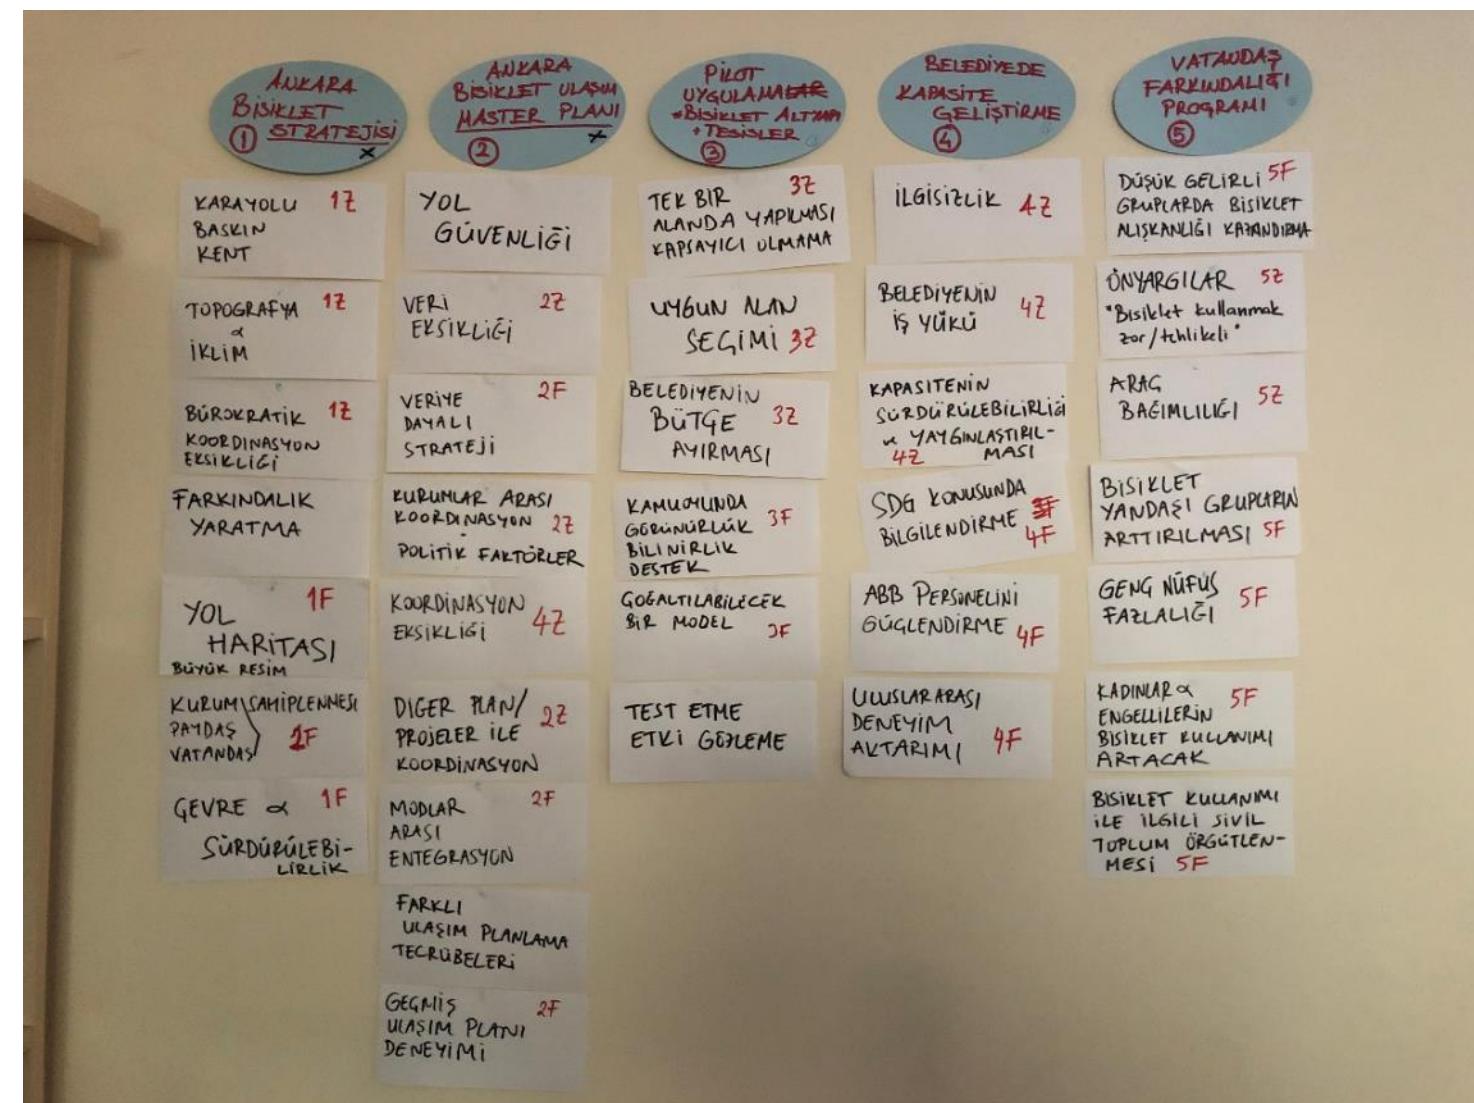 ANKARA
BİSİKLET
① STRATEJİSİ
x
KARAYOLU 1Z
BASKIN
KENT
TOPOGRAFYA 1Z
&
İKLİM
BÜROKRATİK 1Z
KOORDINASYON
EKSİKLİĞİ
FARKINDALIK
YARATMA
YOL 1F
HARİTASI
BÜYÜK RESİM
KURUM SAHİPLENMESİ
PAYDAŞ
VATANDAŞ 1F
ÇEVRE & 1F
SÜRDÜRÜLEBİ-
LİRLİK
ANKARA
BİSİKLET ULAŞIM
MASTER PLANI
② x
YOL
GÜVENLİĞİ
VERİ 2Z
EKSİKLİĞİ
VERİYE 2F
DAYALI
STRATEJİ
KURUMLAR ARASI
KOORDINASYON 2Z
POLİTİK FAKTÖRLER
KOORDİNASYON
EKSİKLİĞİ 4Z
DIGER PLAN/ 2Z
PROJELER İLE
KOORDİNASYON
MODLAR 2F
ARASI
ENTEGRASYON
FARKLI
ULAŞIM PLANLAMA
TECRÜBELERİ
GEÇMİŞ 2F
ULAŞIM PLANI
DENEYİMİ
PİLOT
UYGULAMALAR
BİSİKLET ALTYAPI
+ TESİSLER
③
TEK BİR 3Z
ALANDA YAPILMASI
KAPSAYICI OLMAMA
UYGUN ALAN
SEÇİMİ 3Z
BELEDİYENİN
BÜTÇE 3Z
AYIRMASI
KAMUOYUNDA
GÖRÜNÜRLÜK 3F
BİLİNİRLİK
DESTEK
ÇOĞALTILABİLECEK
BİR MODEL 3F
TEST ETME
ETKİ GÖZLEME
BELEDİYEDE
KAPASİTE
GELİŞTİRME
④
İLGİSİZLİK 4Z
BELEDİYENİN
İŞ YÜKÜ 4Z
KAPASITENİN
SÜRDÜRÜLEBİLİRLİĞİ
ve YAYGINLAŞTIRIL-
4Z MASI
SDG KONUSUNDA
BİLGİLENDİRME
4F
ABB PERSONELİNİ
GÜÇLENDİRME 4F
ULUSLARARASI
DENEYİM
AKTARIMI 4F
VATANDAŞ
FARKINDALIĞI
PROGRAMI
⑤
DÜŞÜK GELİRLİ 5F
GRUPLARDA BİSİKLET
ALIŞKANLIĞI KAZANDIRMA
ÖNYARGILAR 5Z
"Bisiklet kullanmak
zor/tehlikeli"
ARAÇ
BAĞIMLILIĞI 5Z
BİSİKLET
YANDAŞI GRUPLARIN
ARTTIRILMASI 5F
GENÇ NÜFUS
FAZLALIĞI 5F
KADINLAR &
ENGELLİLERİN 5F
BİSİKLET KULLANIMI
ARTACAK
BİSİKLET KULLANIMI
İLE İLGİLİ SİVİL
TOPLUM ÖRGÜTLEN-
MESİ 5F